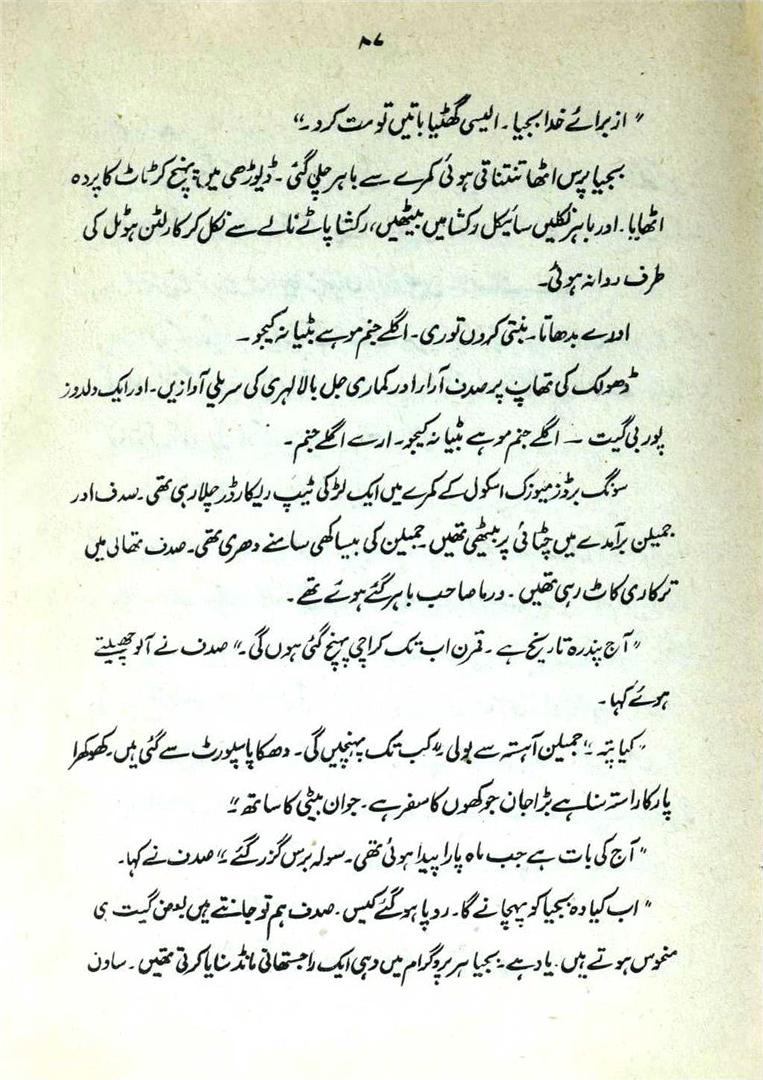 ۸۷
"از برائے خدا بجیا۔ ایسی گھٹیا باتیں تو مت کرو۔"
بجیا پرس اٹھا تنتناتی ہوئی کمرے سے باہر چلی گئی۔ ڈیوڑھی میں پہنچ کر ٹاٹ کا پردہ
اٹھایا۔ اور باہر نکلیں سائیکل رکشا میں بیٹھیں، رکشا پاٹے نالے سے نکل کر کارلٹن ہوٹل کی
طرف روانہ ہوئی۔
اورے بدھاتا۔ بنتی کروں توری۔ اگلے جنم موہے بٹیا نہ کیجو۔
ڈھولک کی تھاپ پر صدف آرا اور کماری جل بالا لہری کی سریلی آوازیں۔ اور ایک دلدوز
پوربی گیت ۔ اگلے جنم موہے بٹیا نہ کیجو۔ ارے اگلے جنم۔
سونگ برڈز میوزک اسکول کے کمرے میں ایک لڑکی ٹیپ ریکارڈر چلا رہی تھی۔ صدف اور
جمیلن برآمدے میں چٹائی پر بیٹھی تھیں۔ جمیلن کی بیساکھی سامنے دھری تھی۔ صدف تھالی میں
ترکاری کاٹ رہی تھیں۔ ورما صاحب باہر گئے ہوئے تھے۔
"آج پندرہ تاریخ ہے۔ قمرن اب تک کراچی پہنچ گئی ہوں گی۔" صدف نے آلو چھیلتے
ہوئے کہا۔
"کیا پتہ۔" جمیلن آہستہ سے بولی "کب تک پہنچیں گی۔ دھکا پاسپورٹ سے گئی ہیں۔ کھوکھرا
پار کا راستہ سنا ہے بڑا جان جوکھوں کا سفر ہے۔ جوان بیٹی کا ساتھ۔"
"آج کی بات ہے جب ماہ پارا پیدا ہوئی تھی۔ سولہ برس گزر گئے۔" صدف نے کہا۔
"اب کیا وہ بجیا کو پہچانے گا۔ روپا ہو گئے کیس۔ صدف ہم تو جانتے ہیں بعض گیت ہی
منحوس ہوتے ہیں۔ یاد ہے۔ بجیا ہر پروگرام میں وہی ایک راجستھانی مانڈ سنایا کرتی تھیں۔ ساون